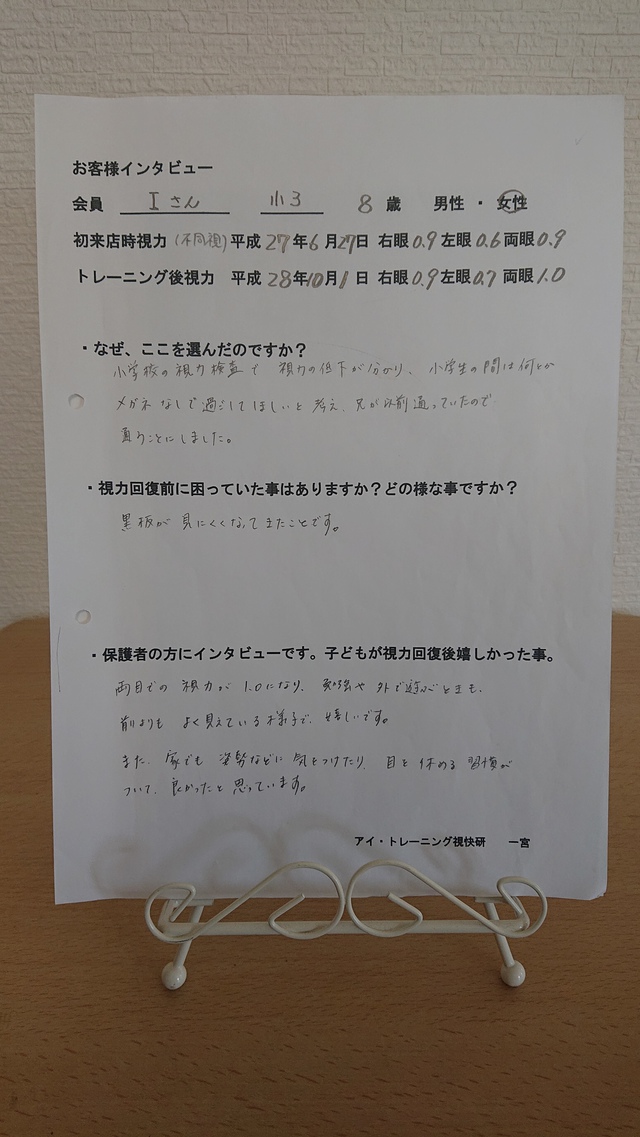 お客様インタビュー
会員 Iさん 小3 8歳 男性・女性
初来店時視力(不同視)平成27年6月27日 右眼0.9左眼0.6両眼0.9
トレーニング後視力 平成28年10月1日 右眼0.9左眼0.7両眼1.0
・なぜ、ここを選んだのですか?
小学校の視力検査で 視力の低下が分かり、小学生の間は何とか
メガネなしで過ごしてほしいと考え、兄が以前通っていたので
通うことにしました。
・視力回復前に困っていた事はありますか?どの様な事ですか?
黒板が見にくくなってきたことです。
・保護者の方にインタビューです。子どもが視力回復後嬉しかった事。
両目での視力が1.0になり、勉強や外で遊ぶときも、
前よりもよく見えている様子で、嬉しいです。
また、家でも姿勢などに気をつけたり、目を休める習慣が
ついて、良かったと思っています。
アイ・トレーニング視快研 一宮